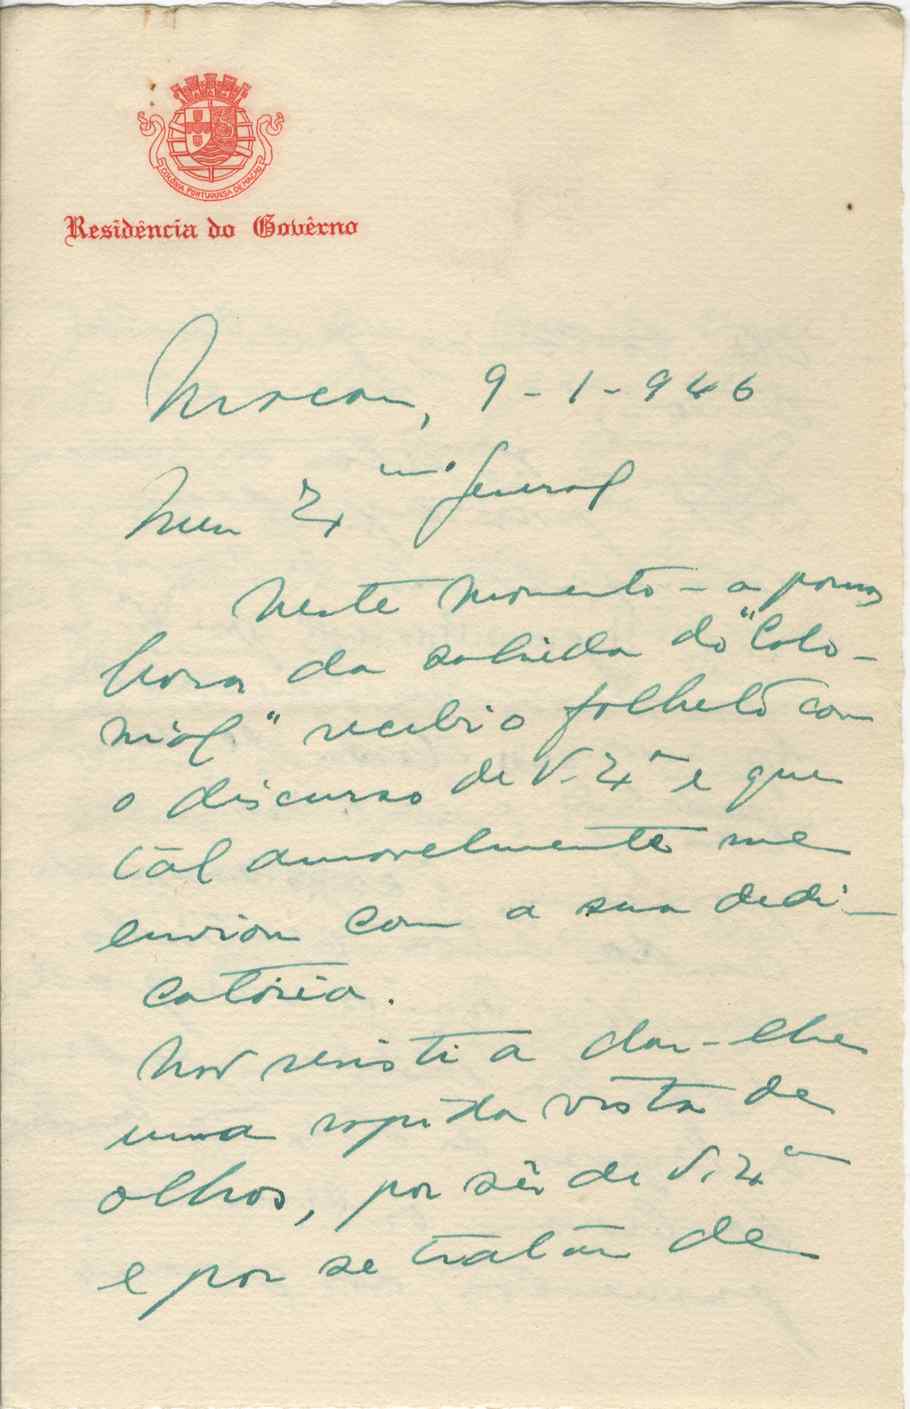 COLÓNIA PORTUGUESA DE MACAU
Residência do Govêrno
Macau, 9-1-946
Meu Exmo. General
Neste momento - a poucas
horas da sahida do "Colo-
nial" recebi o folheto com
o discurso de V. Exa e que
tal amavelmente me
enviou com a sua dedi-
catória.
Não resisti a dar-lhe
uma rapida vista de
olhos, por sêr de V. Exa
e por se tratar de